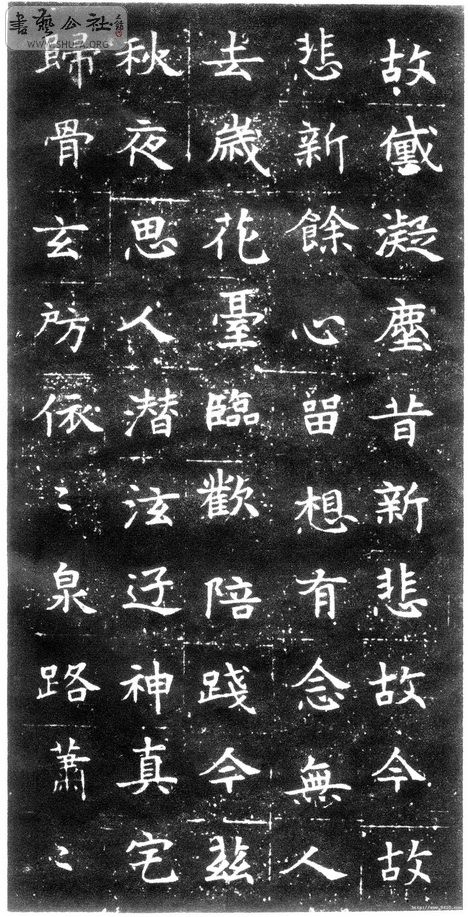 故儀凝塵昔新悲故今故
悲新餘心留想有念無人
去歲花臺臨歡陪踐今茲
秋夜思人潜泫迂神真宅
歸骨玄房依〻泉路蕭〻
書藝公社
WWW.SHUFA.ORG